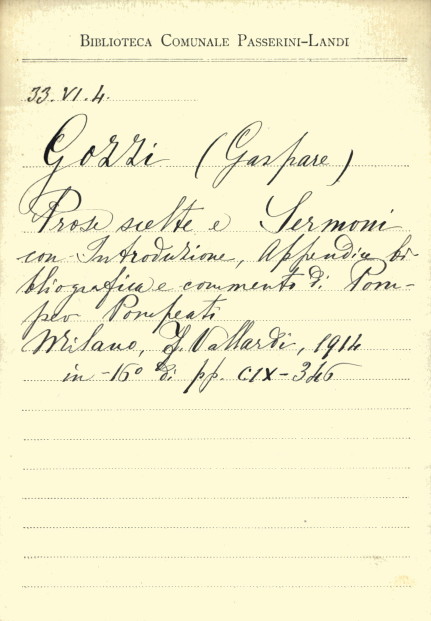 BIBLIOTECA COMUNALE PASSERINI-LANDI
33.VI.4.
Gozzi (Gaspare)
Prose scelte e Sermoni
con Introduzione, Appendice bi-
bliografica e commento di Pom-
peo Pompeati
Milano, F. Vallardi, 1914
in-16° di pp. CIX-346